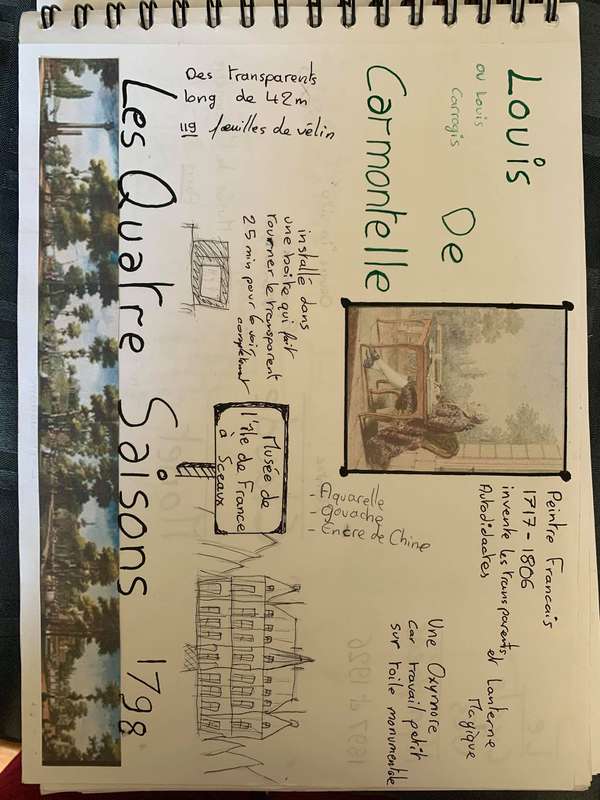 Louis
ou Louis
Carrogis
De
Carmontelle
Peintre Francais
1717 - 1806
invente les transparents et Lanterne
Magique
Autodidactes
Une Oxymore
car travail petit
sur toile monumentale
- Aquarelle
- Gouache
- Encre de Chine
Des transparents
long de 42m
119 feuilles de vélin
installé dans
une boite qui fait
tourner le transparent
25 min pour le voir
complètement
Musée de
l'île de France
à Sceaux
Les Quatre Saisons 1798